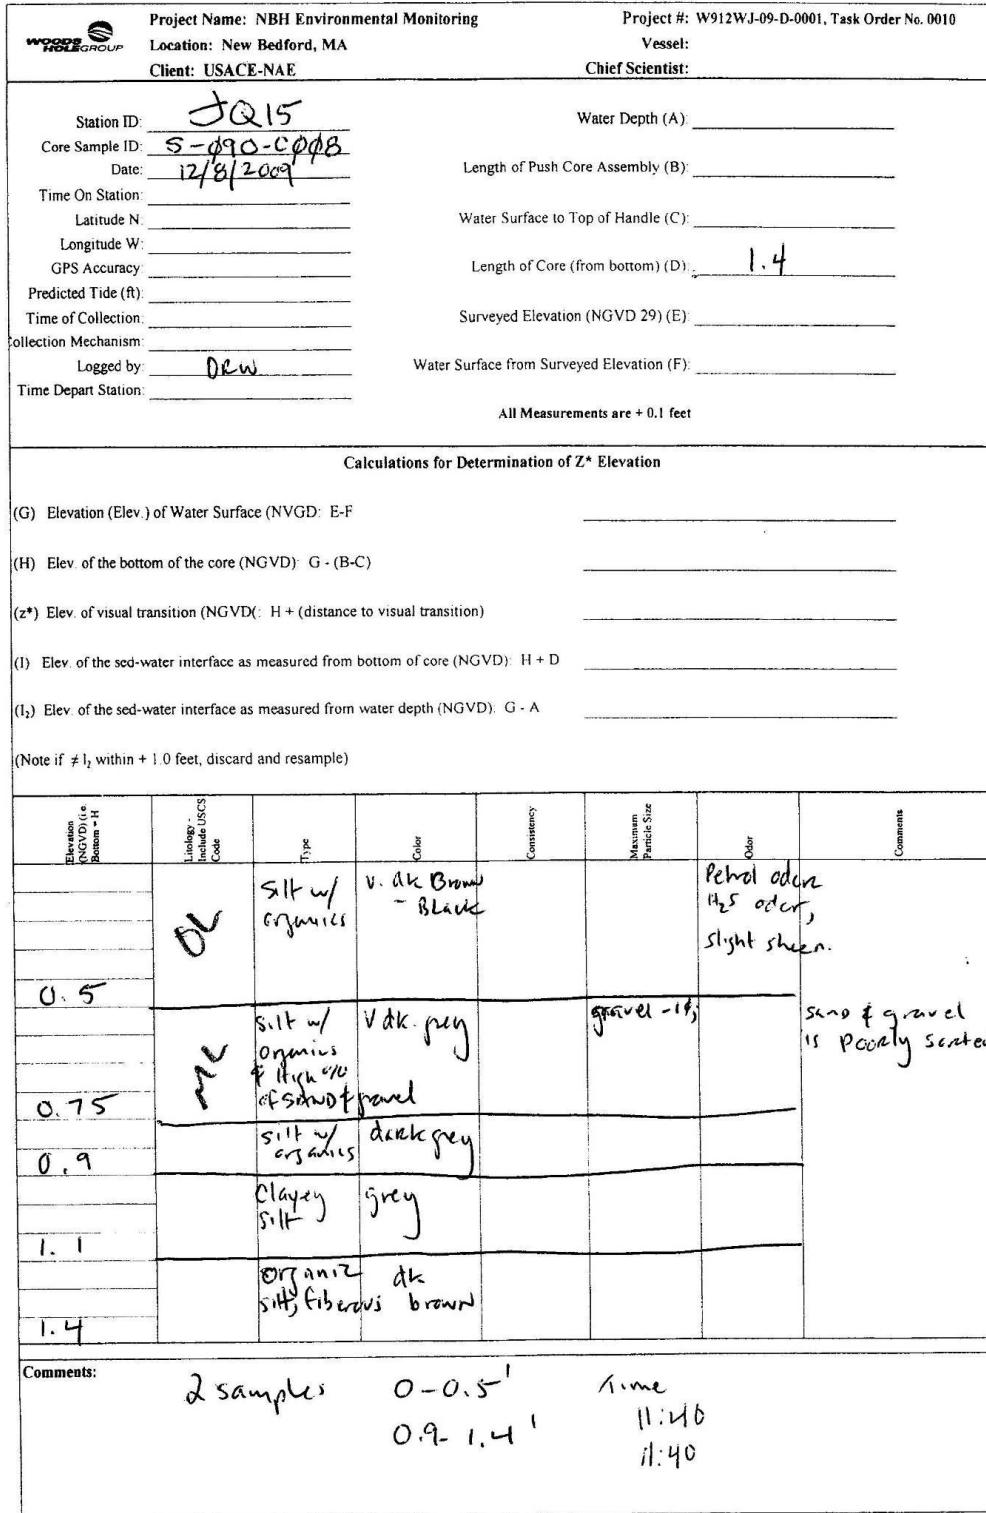 WOODS HOLE GROUP
Project Name: NBH Environmental Monitoring
Location: New Bedford, MA
Client: USACE-NAE
Project #: W912WJ-09-D-0001, Task Order No. 0010
Vessel:
Chief Scientist:
Station ID: JQ15
Core Sample ID: S-Ø9O-CØØ8
Date: 12/8/2009
Time On Station:
Latitude N:
Longitude W:
GPS Accuracy:
Predicted Tide (ft):
Time of Collection:
ollection Mechanism:
Logged by: DRW
Time Depart Station:
Water Depth (A):
Length of Push Core Assembly (B):
Water Surface to Top of Handle (C):
Length of Core (from bottom) (D): 1.4
Surveyed Elevation (NGVD 29) (E):
Water Surface from Surveyed Elevation (F):
All Measurements are + 0.1 feet
Calculations for Determination of Z* Elevation
(G) Elevation (Elev.) of Water Surface (NVGD: E-F
(H) Elev. of the bottom of the core (NGVD): G - (B-C)
(z*) Elev. of visual transition (NGVD(: H + (distance to visual transition)
(I) Elev. of the sed-water interface as measured from bottom of core (NGVD): H + D
(I₂) Elev. of the sed-water interface as measured from water depth (NGVD): G - A
(Note if ≠ I₂ within + 1.0 feet, discard and resample)
Elevation (NGVD) (i.e. Bottom = H
Litology - Include USCS Code
Type
Color
Consistency
Maximum Particle Size
Odor
Comments
OL
silt w/
organics
v. dk Brown
- Black
Petrol odor
H2S odor,
slight sheen.
0.5
ML
silt w/
organics
& High %
of SAND & gravel
V dk. grey
gravel -
sand & gravel
is Poorly sorted
0.75
silt w/
organics
dark grey
0.9
Clayey
silt
grey
1.1
organic
silt, fiberous
dk
brown
1.4
Comments:
2 samples 0-0.5' Time
11:40
0.9-1.4'
11:40